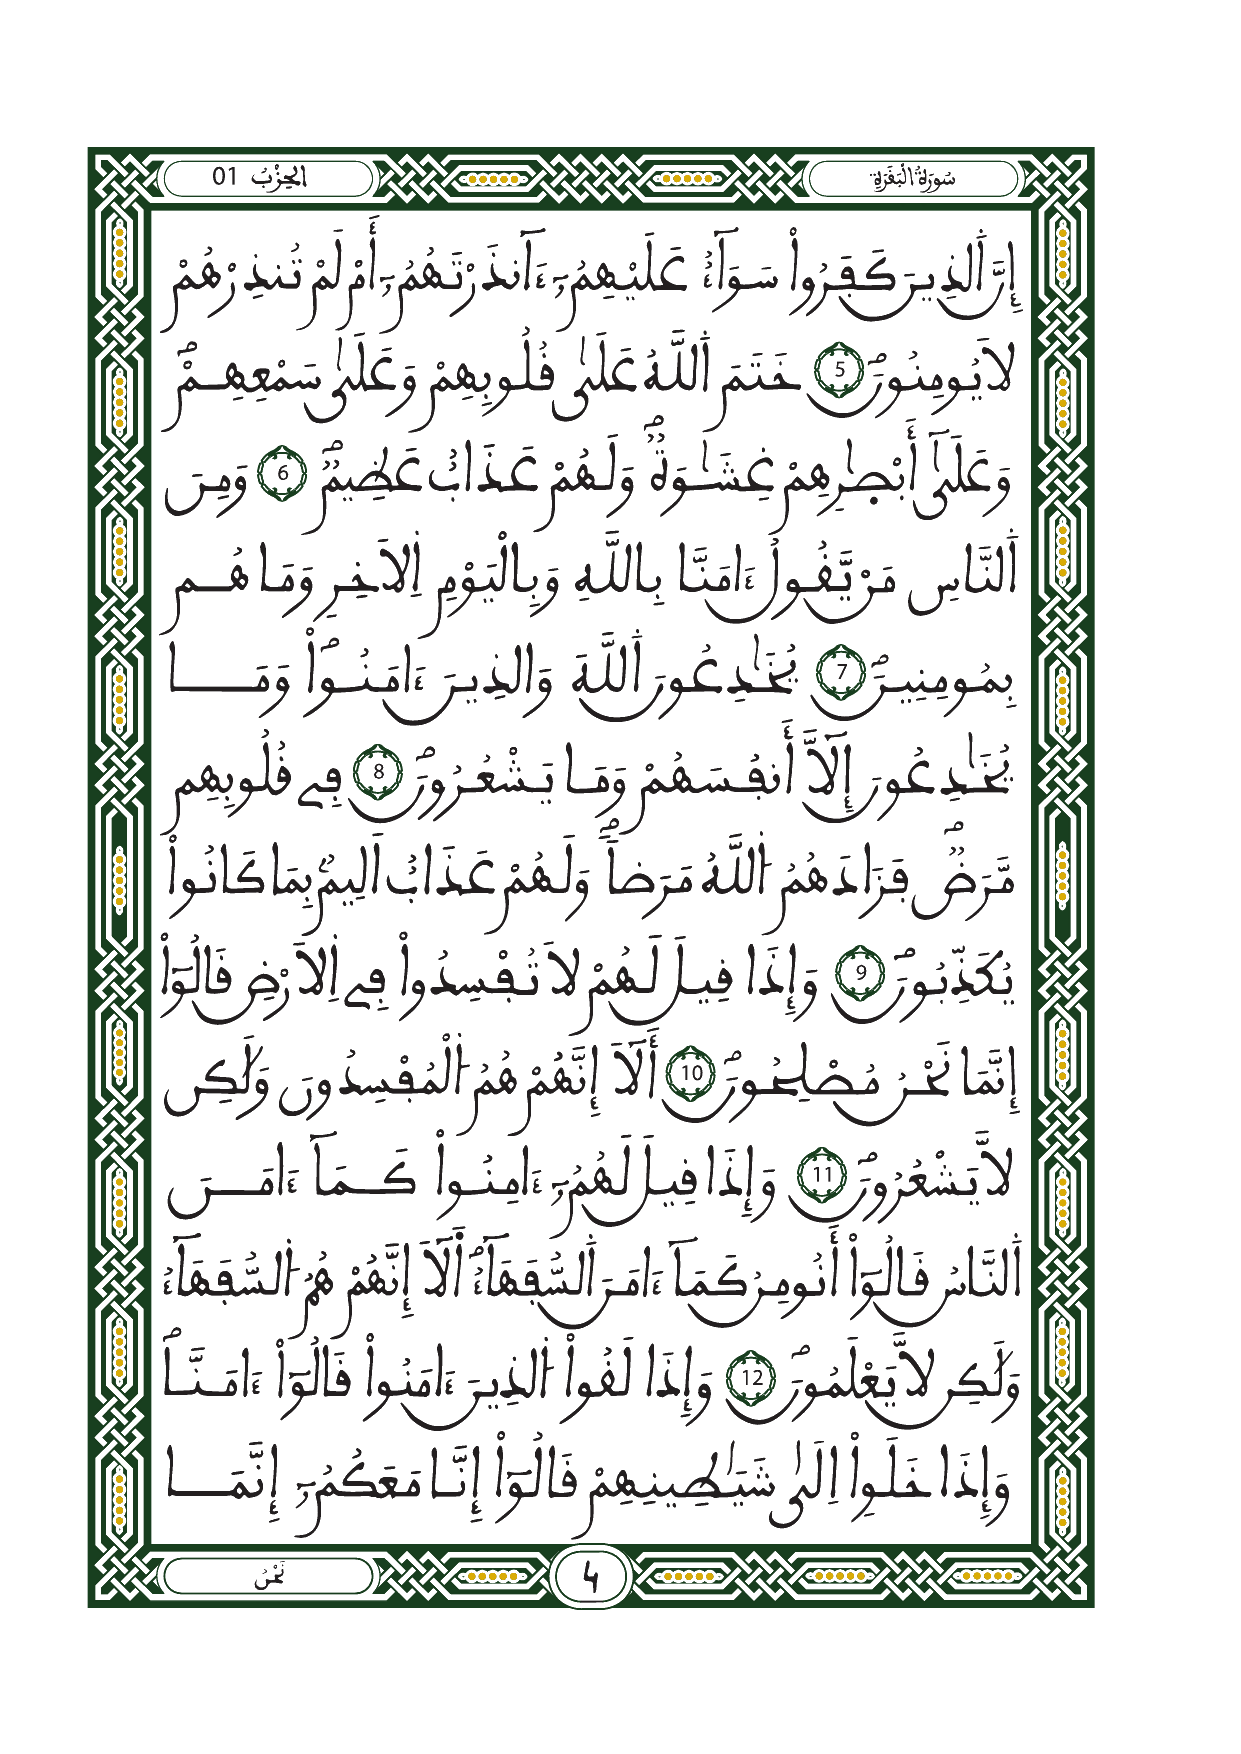 سُورَةُ الْبَقَرَةِ
الْحِزْبُ 01
إِنَّ اَ۬لذِينَ كَفَرُواْ سَوَآءٌ عَلَيْهِمُۥٓ ءَآنذَرْتَهُمُۥٓ أَمْ لَمْ تُنذِرْهُمْ
لَا يُومِنُونَۖ 5 خَتَمَ اَ۬للَّهُ عَلَىٰ قُلُوبِهِمْ وَعَلَىٰ سَمْعِهِمْۖ
وَعَلَىٰٓ أَبْصٰ۪رِهِمْ غِشَٰوَةٞۖ وَلَهُمْ عَذَابٌ عَظِيمٞۖ 6 وَمِنَ
اَ۬لنَّاسِ مَنْ يَّقُولُ ءَامَنَّا بِاللَّهِ وَبِالْيَوْمِ اِ۬لَاخِرِ وَمَا هُم
بِمُومِنِينَۖ 7 يُخَٰدِعُونَ اَ۬للَّهَ وَالذِينَ ءَامَنُواْۖ وَمَا
يُخَٰدِعُونَ إِلَّآ أَنفُسَهُمْ وَمَا يَشْعُرُونَۖ 8 فِے قُلُوبِهِم
مَّرَضٞۖ فَزَادَهُمُ اُ۬للَّهُ مَرَضاٗۖ وَلَهُمْ عَذَابٌ اَلِيمُۢ بِمَا كَانُواْ
يُكَذِّبُونَۖ 9 وَإِذَا قِيلَ لَهُمْ لَا تُفْسِدُواْ فِے اِ۬لَارْضِ قَالُوٓاْ
إِنَّمَا نَحْنُ مُصْلِحُونَۖ 10 أَلَآ إِنَّهُمْ هُمُ اُ۬لْمُفْسِدُونَ وَلَٰكِن
لَّا يَشْعُرُونَۖ 11 وَإِذَا قِيلَ لَهُمُۥٓ ءَامِنُواْ كَمَآ ءَامَنَ
اَ۬لنَّاسُ قَالُوٓاْ أَنُومِنُ كَمَآ ءَامَنَ اَ۬لسُّفَهَآءُۖ اَ۬لَآ إِنَّهُمْ هُمُ اُ۬لسُّفَهَآءُ
وَلَٰكِن لَّا يَعْلَمُونَۖ 12 وَإِذَا لَقُواْ اُ۬لذِينَ ءَامَنُواْ قَالُوٓاْ ءَامَنَّاۖ
وَإِذَا خَلَوِاْ اِلَىٰ شَيَٰطِينِهِمْ قَالُوٓاْ إِنَّا مَعَكُمُۥٓ إِنَّمَا
نَحْنُ
4